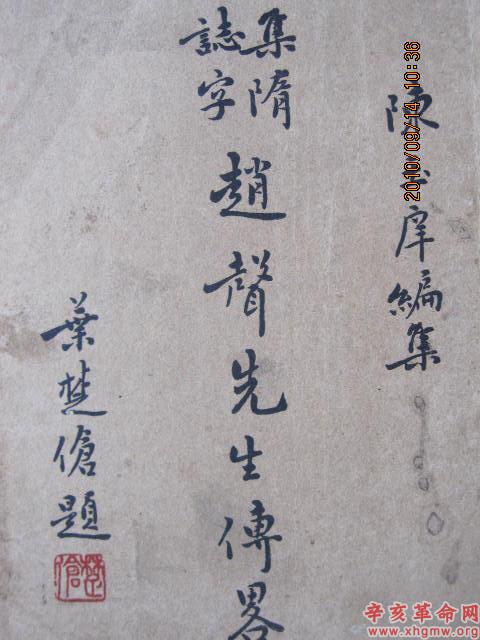 陳
庠編集
集隋
誌字
趙聲先生傳畧
葉楚傖題
楚傖
2010/09/14 10:36
辛亥革命网
www.xhgmw.org